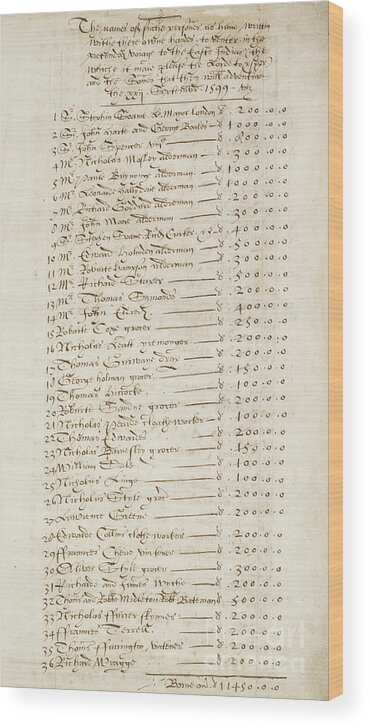 The names of suche persones as have written
withe there owne handes, to venter in the
pretended voiage to the Easte Indias, the
whiche it maie please the Lord to prosper
and the Somes that they will adventure
the xxij September 1599 viz
1 Sr. Stephin Soame L Maior London £ 200.0.0
2 Sr. John harte and George Boales £ 1000.0.0
3 Sr. John Spencer £ 800.0.0
4 Mr. Nicholas Mosley alderman £ 300.0.0
5 Mr. Paule Banninge alderman £ 1000.0.0
6 Mr. Leonard hallydaie alderman £ 1000.0.0
7 Mr. Richard Goddard alderman £ 200.0.0
8 Mr. John Moore alderman £ 300.0.0
9 Sr. Stephen Soame £ 400.0.0
10 Mr. Edward holmdon alderman £ 500.0.0
11 Mr. Roberte hampson alderman £ 300.0.0
12 Mr. Richard Staper £ 500.0.0
13 Mr. Thomas Simonds £ 200.0.0
14 Mr. John £ 400.0.0
15 Roberte Coxe grocer £ 250.0.0
16 Nicholas Leatt £ 200.0.0
17 Thomas £ 200.0.0
18 George holman grocer £ 150.0.0
19 Thomas £ 100.0.0
20 Roberte Sandie grocer £ 200.0.0
21 Nicholas Pearde clotheworker £ 100.0.0
22 Thomas Edwardes £ 200.0.0
23 Nicholas Barnesley grocer £ 150.0.0
24 William Dale £ 100.0.0
25 Nicholas Linge £ 100.0.0
26 Nicholas Style grocer £ 200.0.0
27 Lawrence Greene £ 200.0.0
28 Edwarde Collins clotheworker £ 200.0.0
29 ffrauncis Cherie vintener £ 200.0.0
30 Oliver Style grocer £ 300.0.0
31 Richarde and James Wyche £ 200.0.0
32 Thomas and Robte Midleton Robt Bateman £ 500.0.0
33 Nicholas ffarrer skynner £ 200.0.0
34 ffrauncis Terrell £ 200.0.0
35 Thomas ffarrington vintener £ 200.0.0
36 Richard Wragge £ 200.0.0
£ 11450.0.0